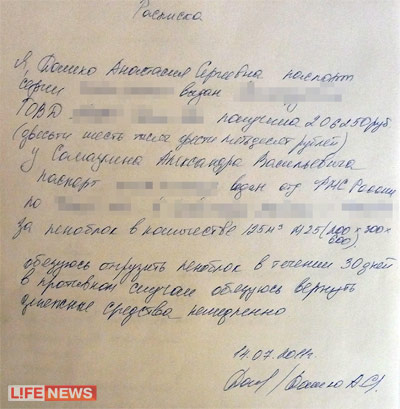 Расписка
Я, Дошко Анастасия Сергеевна паспорт
серии выдан
ГОВД получила 206250 руб
(двести шесть тысяч двести пятьдесят рублей)
у Самаулина Александра Васильевича
паспорт выдан отд. УФМС России
по
за пеноблок в количестве 125 м³ (200 × 300 ×
600)
обязуюсь отгрузить пеноблок в течении 30 дней
в противном случаи обязуюсь вернуть
денежные средства немедленно
14.07.2011г
LIFE NEWS